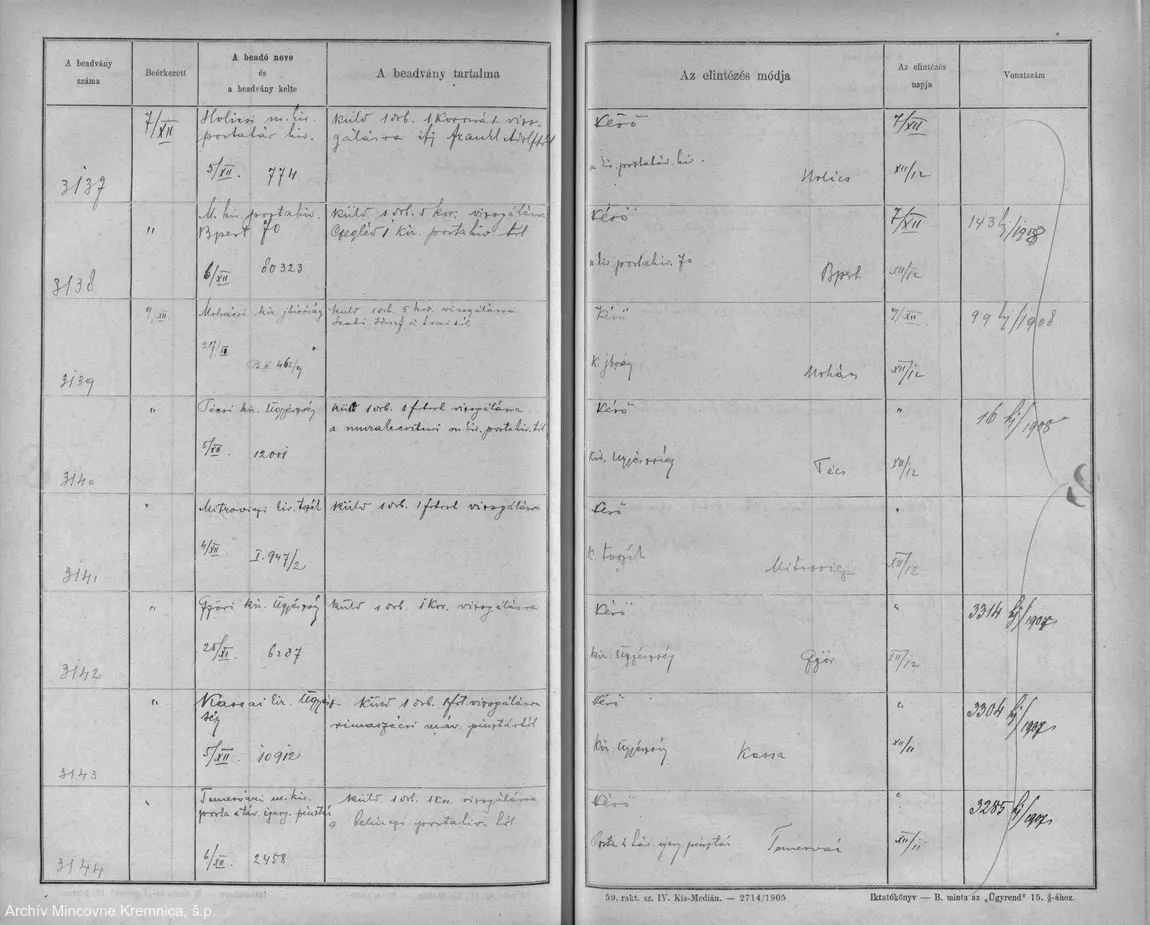 A beadvány száma
Beérkezett
A beadó neve és a beadvány kelte
A beadvány tartalma
Az elintézés módja
Az elintézés napja
Vonatszám
3137
7/XII
Holicsi m. kir.
5/XII. 774
küld 1 drb. 1 koronát vizs-
gálásra ifj Frankl Adolftól
Kérő
Holics
7/XII
XII/12
3138
"
M. kir. postahiv.
Bpest 70
6/XII 80323
küld 1 drb. 5 kor. vizsgálásra
Czegléd 1 kir. postahiv. tól
Kérő
m kir. postahiv. 70
Bpest
7/XII
XII/12
143 bj/1908
3139
9/XII
Mohácsi kir. jbíróság
27/XI
küld 1 drb. 5 kor. vizsgálásra
Szabó József és társaitól
Kérő
k. jbíróság
Mohács
XII/12
99 bj/1908
3140
"
Pécsi kir. Ügyészség
5/XII. 12001
küld 1 drb. 1 frtost vizsgálásra
Kérő
kir. Ügyészség
Pécs
"
XII/12
16 bj/1908
3141
"
Mitroviczi kir. tszék
4/XII I. 947/2
küld 1 drb. 1 frtost vizsgálásra
Kérő
k. tvszék
Mitrovicz
"
XII/12
3142
"
Győri kir. Ügyészség
25/XI. 6287
küld 1 drb. 1 kor. vizsgálásra
Kérő
kir. Ügyészség
Győr
"
XII/12
3314 bj/1907
3143
"
Kassai kir. Ügyész-
ség
5/XII. 10912
küld 1 drb. 1 frt. vizsgálásra
m. áv. pénztártól
Kérő
kir. Ügyészség
Kassa
"
XII/11
3304 bj/1907
3144
"
Temesvári m. kir.
posta és táv. igazg. pénztár
6/XII 2458
küld 1 drb. 1 kor. vizsgálásra
postahiv. tól
Kérő
Posta és táv. igazg. pénztár
Temesvár
"
XII/11
3285 bj/1907
59. rakt. sz. IV. Kis-Medián. — 2714/1905
Iktatókönyv — B. minta az „Ügyrend" 15. §-ához.
Archív Mincovne Kremnica, š.p.